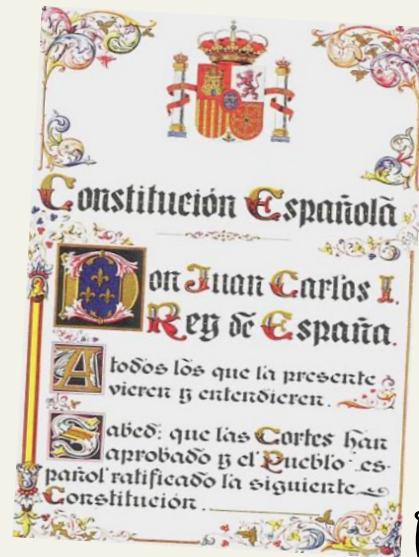 Constitución Española
Don Juan Carlos I.
Rey de España.
A todos los que la presente
vieren y entendieren.
Sabed: que las Cortes han
aprobado y el Pueblo es-
pañol ratificado la siguiente
Constitución.